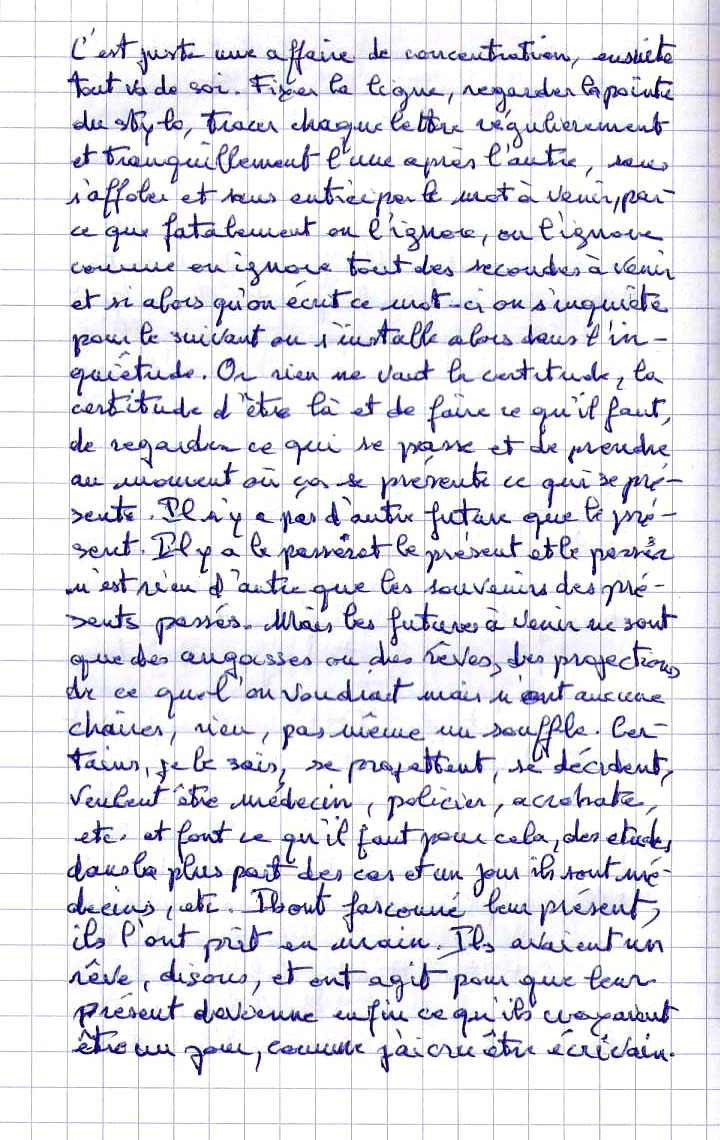 C'est juste une affaire de concentration, ensuite
tout va de soi. Fixer la ligne, regarder la pointe
du stylo, tracer chaque lettre régulièrement
et tranquillement l'une après l'autre, sans
s'affoler et sans anticiper le mot à venir, par-
ce que fatalement on l'ignore, on l'ignore
comme on ignore tout des secondes à venir
et si alors qu'on écrit ce mot-ci on s'inquiète
pour le suivant on s'installe alors dans l'in-
quiétude. Or rien ne vaut la certitude, la
certitude d'être là et de faire ce qu'il faut,
de regarder ce qui se passe et de prendre
au moment où ça se présente ce qui se pré-
sente. Il n'y a pas d'autre future que le pré-
sent. Il y a le passé et le présent et le passé
n'est rien d'autre que les souvenirs des pré-
sents passés. Mais les futures à venir ne sont
que des angoisses ou des rêves, des projections
de ce que l'on voudrait mais n'ont aucune
chaires, rien, pas même un souffle. Cer-
tains, je le sais, se projettent, se décident,
veulent être médecin, policier, acrobate,
etc. et font ce qu'il faut pour cela, des etudes
dans la plus part des cas et un jour ils sont mé-
decins, etc. Ils ont fasconné leur présent,
ils l'ont prit en main. Ils avaient un
rêve, disons, et ont agit pour que leur
présent devienne enfin ce qu'ils croyaient
être un jour, comme j'ai cru être écrivain.